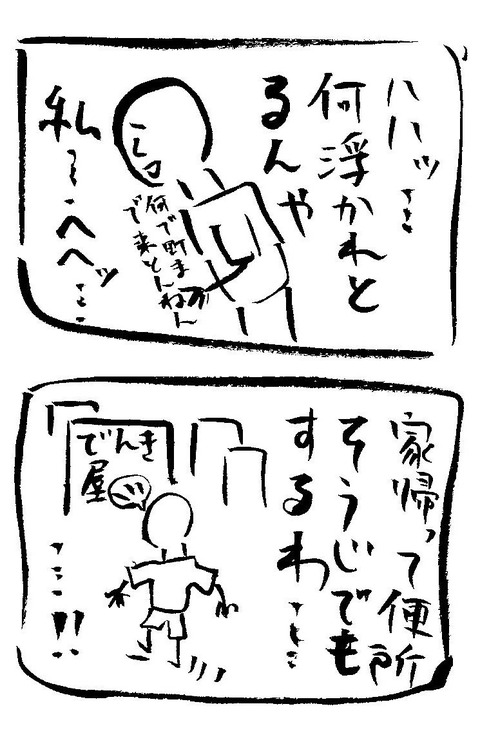 ハハッ…
何浮かれと
るんや
私…へヘッ…
何で町ま
で来とんねん
家帰って便所
そうじでも
するわ……
でんき
屋
…!!